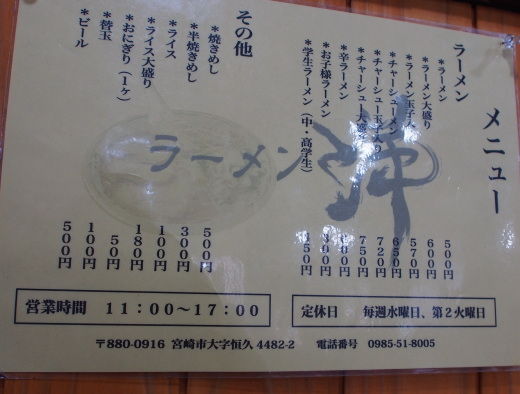 メニュー
ラーメン
*ラーメン 500円
*ラーメン大盛り 600円
*ラーメン玉子入 570円
*チャーシューメン 650円
*チャーシュー玉子入り 720円
*チャーシュー大盛 750円
*辛ラーメン
*お子様ラーメン
*学生ラーメン(中・高学生)
その他
*焼きめし 500円
*半焼きめし 300円
*ライス 100円
*ライス大盛り 180円
*おにぎり(1ヶ) 50円
*替玉 100円
*ビール 500円
ラーメン
営業時間 11:00~17:00
定休日 毎週水曜日、第2火曜日
〒880-0916 宮崎市大字恒久 4482-2 電話番号 0985-51-8005